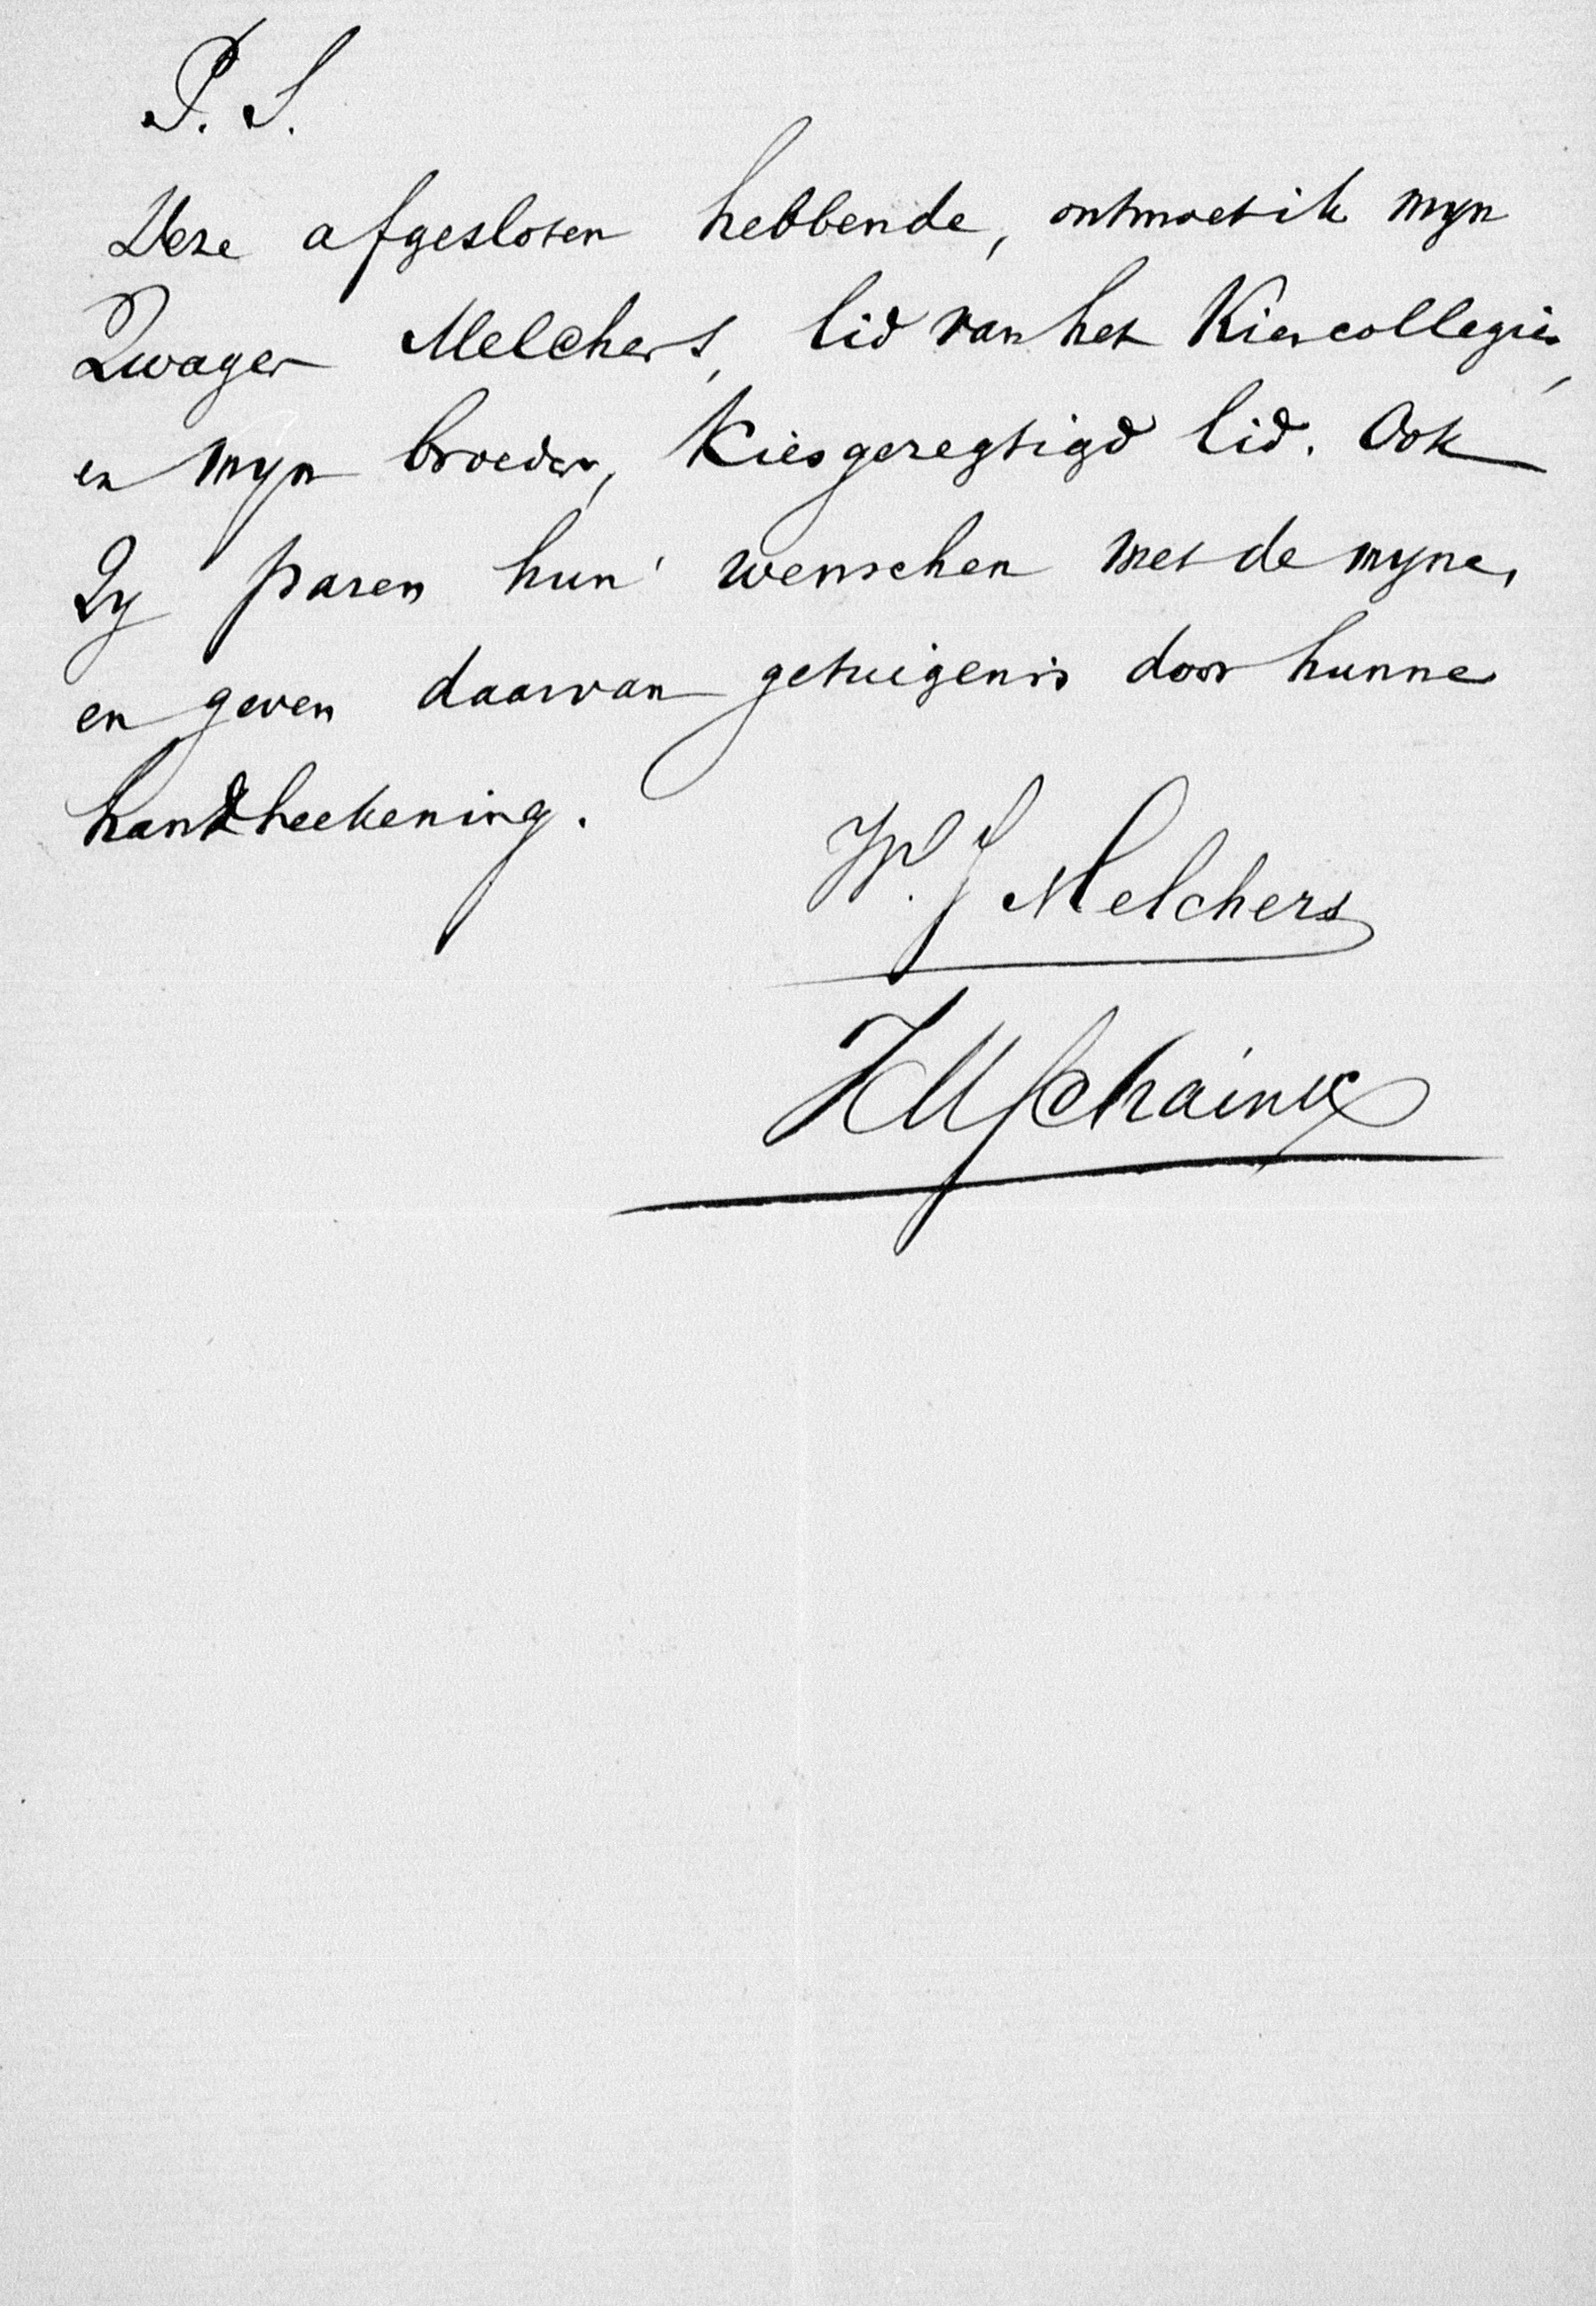 P. S.
Deze afgesloten hebbende, ontmoet ik myn
Zwager Melchers, lid van het Kiescollegie,
en myn broeder, Kiesgeregtigd lid. Ook
Zy paren hun' wenschen met de myne,
en geven daarvan getuigenis door hunne
handteekening.
W. J Melchers